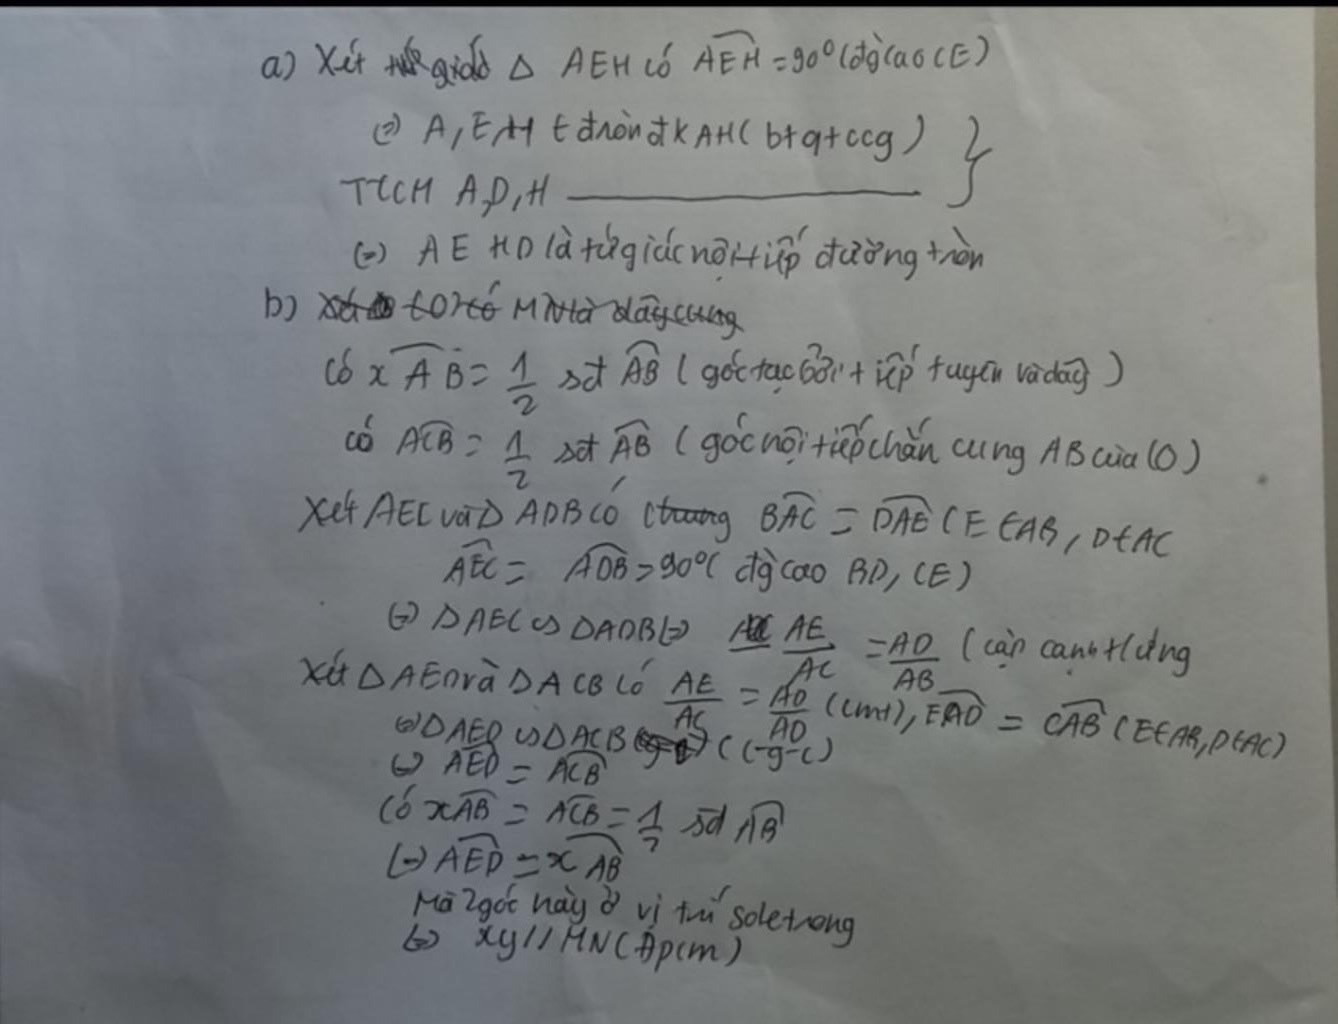 a) Xét Δ AEH có AEH = 90° (đg cao CE)
(=) A, E, H ∈ đ tròn đk AH ( bt q t ccg )
TTCM A, D, H
(=) AEHD là tứ giác nội tiếp đường tròn
b) MN là dây cung
Có xAB = 1/2 sđ AB ( góc tạo bởi tiếp tuyến và dây )
có ACB = 1/2 sđ AB ( góc nội tiếp chắn cung AB của (O)
Xét AEC và Δ ADB có chung BAC = DAE ( E ∈ AB, D ∈ AC
AEC = ADB = 90° ( đg cao BD, CE )
(=) Δ AEC ∽ Δ ADB (=) AE/AC = AD/AB ( cặp cạnh t/ứng
Xét Δ AED và Δ ACB có AE/AC = AD/AD (cmt), EAD = CAB ( E ∈ AB, D ∈ AC)
(=) Δ AED ∽ Δ ACB (c-g-c)
(=) AED = ACB
Có xAB = ACB = 1/2 sđ AB
(=) AED = xAB
Mà 2 góc này ở vị trí sole trong
(=) xy // MN ( Đpcm )